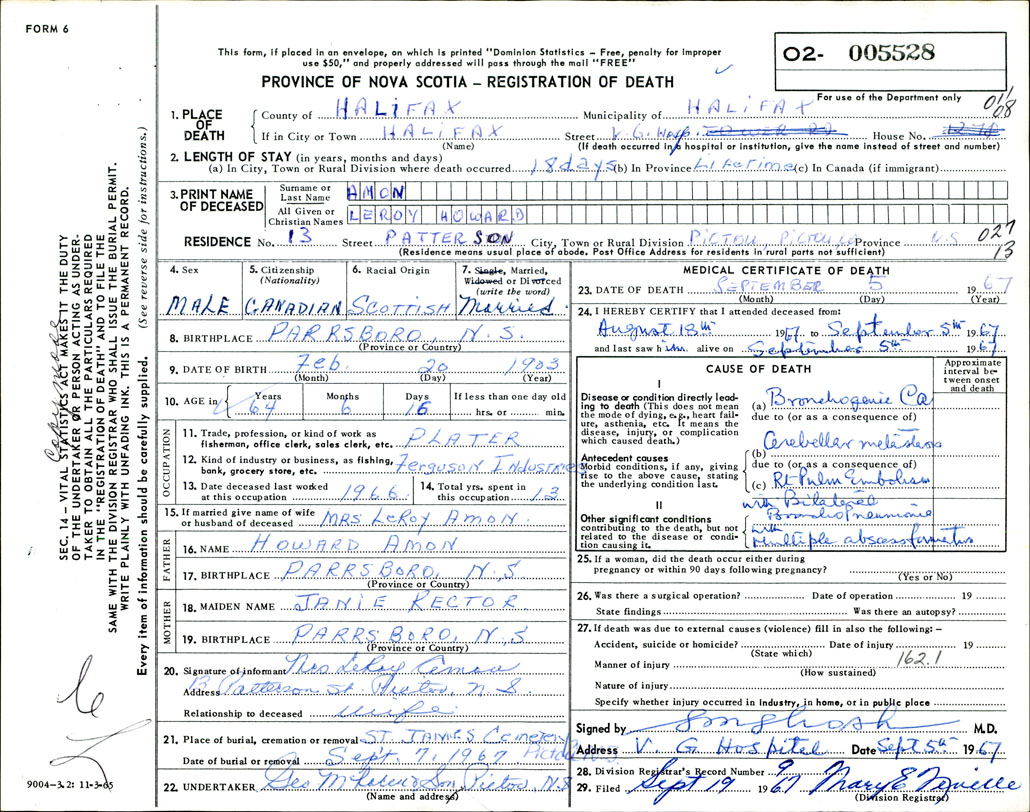 FORM 6
This form, if placed in an envelope, on which is printed "Dominion Statistics – Free, penalty for improper
use $50," and properly addressed will pass through the mail "FREE"
O2- 005528
PROVINCE OF NOVA SCOTIA – REGISTRATION OF DEATH
For use of the Department only
011
08
1. PLACE OF DEATH
County of HALIFAX Municipality of HALIFAX
If in City or Town HALIFAX Street V.G. Hosp. House No.
(Name) (If death occurred in a hospital or institution, give the name instead of street and number)
2. LENGTH OF STAY (in years, months and days)
(a) In City, Town or Rural Division where death occurred 18 days (b) In Province Lifetime (c) In Canada (if immigrant)
3. PRINT NAME OF DECEASED
Surname or Last Name AMON
All Given or Christian Names LEROY HOWARD
RESIDENCE No. 13 Street PATTERSON City, Town or Rural Division PICTOU, PICTOU CO Province N.S. 027
13
(Residence means usual place of abode. Post Office Address for residents in rural parts not sufficient)
4. Sex
MALE
5. Citizenship
(Nationality)
CANADIAN
6. Racial Origin
SCOTTISH
7. Single, Married,
Widowed or Divorced
(write the word)
Married
8. BIRTHPLACE PARRSBORO N.S.
(Province or Country)
9. DATE OF BIRTH Feb. 20 1903
(Month) (Day) (Year)
10. AGE in Years Months Days If less than one day old
64 6 16 hrs. or min.
OCCUPATION
11. Trade, profession, or kind of work as
fisherman, office clerk, sales clerk, etc. PLATER
12. Kind of industry or business, as fishing,
bank, grocery store, etc. Ferguson Industries
13. Date deceased last worked
at this occupation 1966
14. Total yrs. spent in
this occupation 13
15. If married give name of wife
or husband of deceased MRS LeROY AMON
FATHER
16. NAME HOWARD AMON
17. BIRTHPLACE PARRSBORO, N.S
(Province or Country)
MOTHER
18. MAIDEN NAME JANIE RECTOR
19. BIRTHPLACE PARRSBORO, N.S
(Province or Country)
20. Signature of informant Mrs LeRoy Amon
Address 13 Patterson St. Pictou, N.S.
Relationship to deceased wife
21. Place of burial, cremation or removal ST. JAMES Cemetery
Date of burial or removal Sept. 7, 1967
22. UNDERTAKER Son Pictou N.S
(Name and address)
MEDICAL CERTIFICATE OF DEATH
23. DATE OF DEATH SEPTEMBER 5 1967
(Month) (Day) (Year)
24. I HEREBY CERTIFY that I attended deceased from:
August 18th 1967 to September 5th 1967
and last saw him alive on September 5th 1967
CAUSE OF DEATH
Approximate
interval be-
tween onset
and death
I
Disease or condition directly lead-
ing to death (This does not mean
the mode of dying, e.g., heart fail-
ure, asthenia, etc. It means the
disease, injury, or complication
which caused death.)
(a) Bronchogenic Ca
due to (or as a consequence of)
Cerebellar metastasis
Antecedent causes
Morbid conditions, if any, giving
rise to the above cause, stating
the underlying condition last.
(b)
due to (or as a consequence of)
(c) Rt Pulm Embolism
with Bilateral
Bronchopneumonia
II
Other significant conditions
contributing to the death, but not
related to the disease or condi-
tion causing it.
with
Multiple abscess formation
25. If a woman, did the death occur either during
pregnancy or within 90 days following pregnancy?
(Yes or No)
26. Was there a surgical operation? Date of operation 19
State findings Was there an autopsy?
27. If death was due to external causes (violence) fill in also the following: –
Accident, suicide or homicide? Date of injury 19
(State which)
162.1
Manner of injury
(How sustained)
Nature of injury
Specify whether injury occurred in industry, in home, or in public place
Signed by M.D.
Address V G Hospital Date Sept 5th 1967
28. Division Registrar's Record Number 9
29. Filed Sept 19 1967 Mary E Neville
(Division Registrar)
SEC. 14 – VITAL STATISTICS ACT MAKES IT THE DUTY
OF THE UNDERTAKER OR PERSON ACTING AS UNDER-
TAKER TO OBTAIN ALL THE PARTICULARS REQUIRED
IN THE "REGISTRATION OF DEATH" AND TO FILE THE
SAME WITH THE DIVISION REGISTRAR WHO SHALL ISSUE THE BURIAL PERMIT.
WRITE PLAINLY WITH UNFADING INK. THIS IS A PERMANENT RECORD.
Every item of information should be carefully supplied. (See reverse side for instructions.)
9004-3.2: 11-3-65